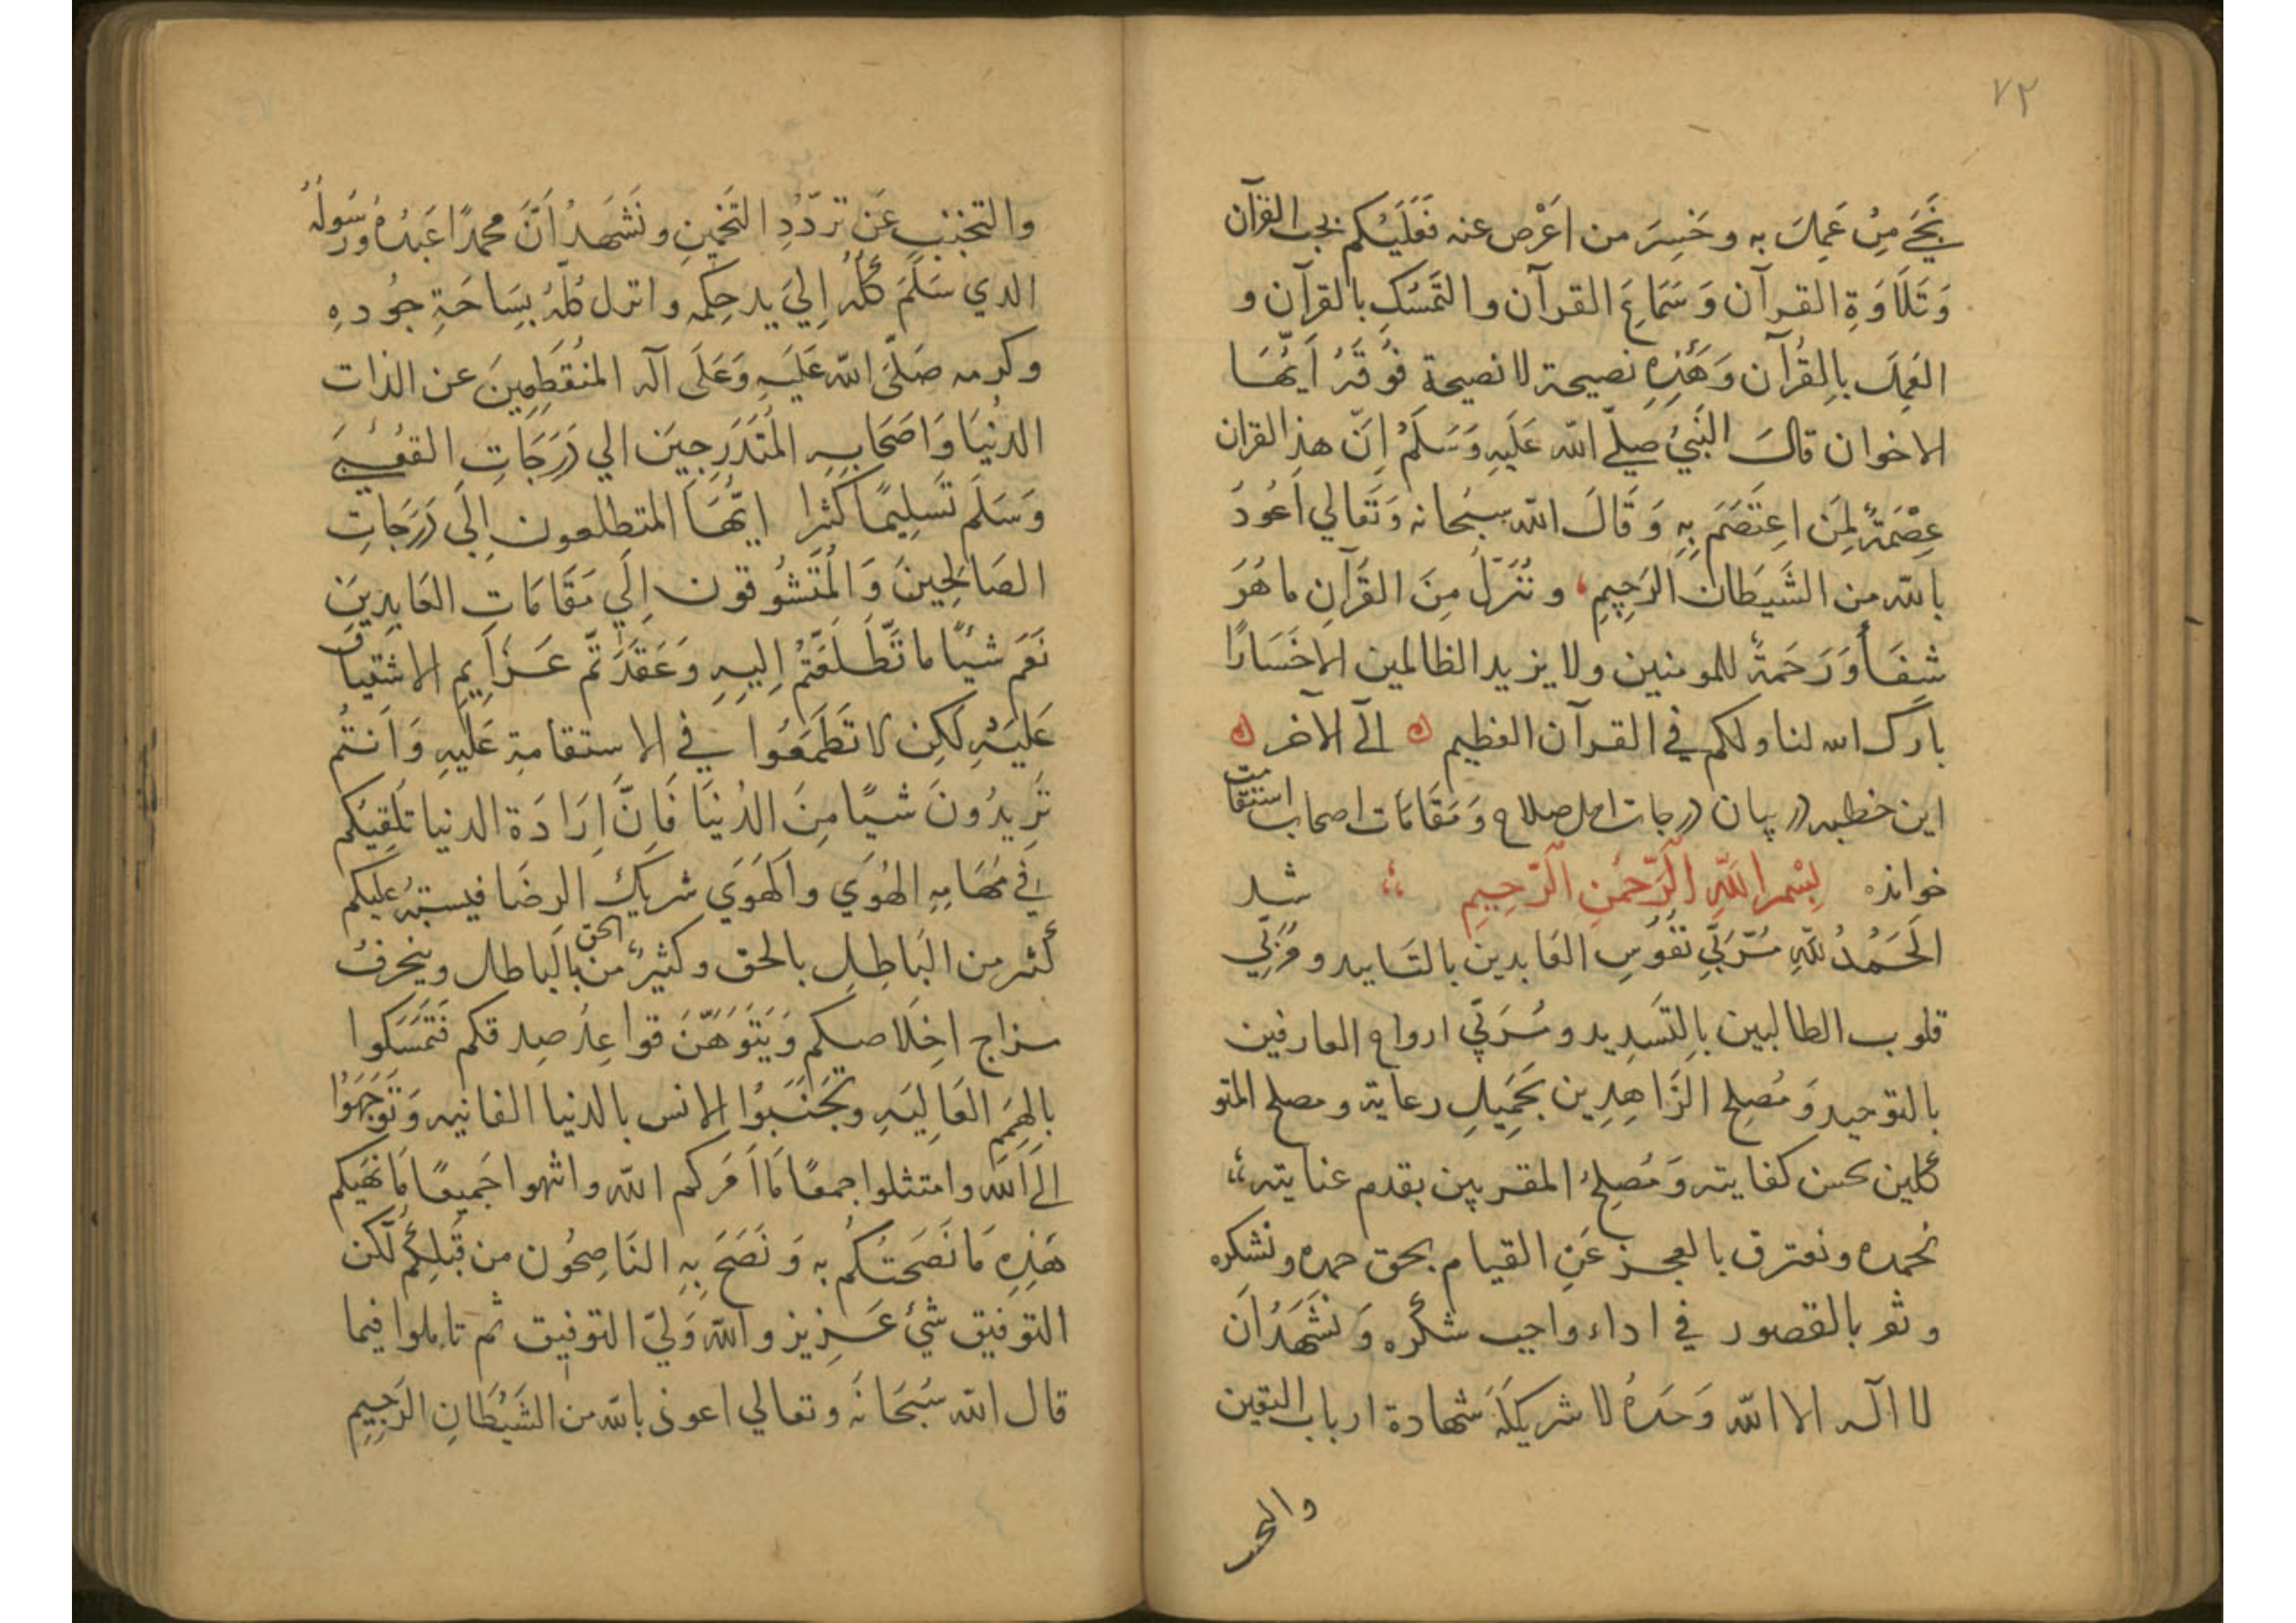 ٧٢
نَجَیَ مِنْ عَمِلَ به وخَسِرَ من اَعْرَض عنه فَعَلَیْکم بحب القرآن
وَتَلَاوَةِ القرآن وَسَمَاعَ القرآن والتَمَسُکِ بالقرآن و
العَمِلَ بالِقُرآن وَهَذِهِ نصیحة لا نصیحة فَوْقَهُ اَیُّهَا
الاخوان قالَ النَبِیُ صَلیّ الله عَلَیهِ وَسَلَمْ اِنّ هذا القران
عِصْمَةٌ لِمَن اعِتَصَمَ بِهِ وَقَالَ الله سبحانه وَتَعالي اَعُودُ
بالله من الشَیطَان الرَجِیمِ، ونُنَزِّلُ مِنَ القُرَآنِ ما هُوَ
شِفَاً وَرَحمَةٌ للمومنین ولا یزید الظالمین الا خَسَارًا
بارک الله لنا ولکم في القرآن العظیم ۵ الَی الآخر ۵
این خطبه در بیان درجات اهل صلاح وَمَقَامَات اصحاب استقامت
خوانده بِسْمِ اللَّهِ الرَّحمَنِ الرَّحِیمِ شد
الَحَمْدُ للّهِ مُرَبِّي نُفُوُسِ العَابدین بالتَایید ومُزَکِّي
قلوب الطالبین بِالتَسَدِید ومُرَقِّي ارواح العارفین
بالتوحید وَمُصلِح الزَاهِدِین بَجَمِیلِ رعایة ومصلح المتو
کلین بحسن کفایته وَمُصلِحُ المقربین بقدم عنایته
نحمده ونعترف بالعجز عَنِ القیام بحق حمده ونشکره
ونقر بالقصور في اداء واجب شکره وَنَشَهَدُ اَن
لا اله الا الله وَحَدَهُ لا شریکَلَهُ شهادة ارباب الیقین
والتجـ
والتجنب عَن تردّدِ التَخمِینِ ونَشهَدُ اَنَّ محمدًا عَبدُهُ وَرَسُولُهُ
الذي سَلَّمَ کُلَّهُ اِليَ ید حِکمِه وانزل کُلّهُ بِسَاحَةِ جُودهِ
وکرمه صَلَّیَ الله عَلَیهِ وَعَلَی آله المنقَطِعِینَ عن الذات
الدُنیَا وَاصَحَابِهِ المُتَدَرِجِینَ الي دَرَجَاتِ القُعُبیَ
وَسَلَّم تَسلِیمًا کثرا ایُّهَا المتطلعون اِلَی دَرَجَاتِ
الصَالحِینَ وَالمُتَشُوقون اِلَي مَقَامَاتِ العَابِدِیَن
نَعَم شیئًا ما تَطَّلَعَتُم اِلیهِ وَعَقَدَتُّم عَزَایِمِ الاشتیاقَ
عَلیَهِ لَکِن لا تَطمَعُوا في الاستقامة عَلَیهِ وَاَنتُم
تَرِیدُونَ شیًا مِنَ الدُنیَا فَاِنَّ اِرَادَة الدنیا تَلقِیکُم
في مَهَامِهِ الهُوَي والَهَوَي شریكَ الرضَا فیستبهُ علیکم
کَثر من البَاطِلِ بالحق وکثیرٌ من الحق بالَباطل وینحرفُ
مزاج اخلَاصکم وَیَتَوَهّنَ قواعِدُ صِدقکم فَتَمَسَکوا
بالهِمَمِ العَالِیَهِ وتَجَنَبُوا الانس بالدنیا الفانیه وَتَوَجَهُوُا
اِلَی اللهَ وامتثلوا جمعًا مَا اَمَرکم الله وانتهوا جَمیعًا مَا نهَیکم
هَذِهِ مَا نَصَحَتُکم به وَنَصَحَ بِهِ النَاصِحُون من قَبلِکُم لَکن
التوفیق شيُ عَزِیز والله وَليّ التوفیق ثم تاملوا فیما
قال الله سُبَحَانَهُ وتعالي اعوذ بالله من الشَیُطَانِ الرَجِیِمِ